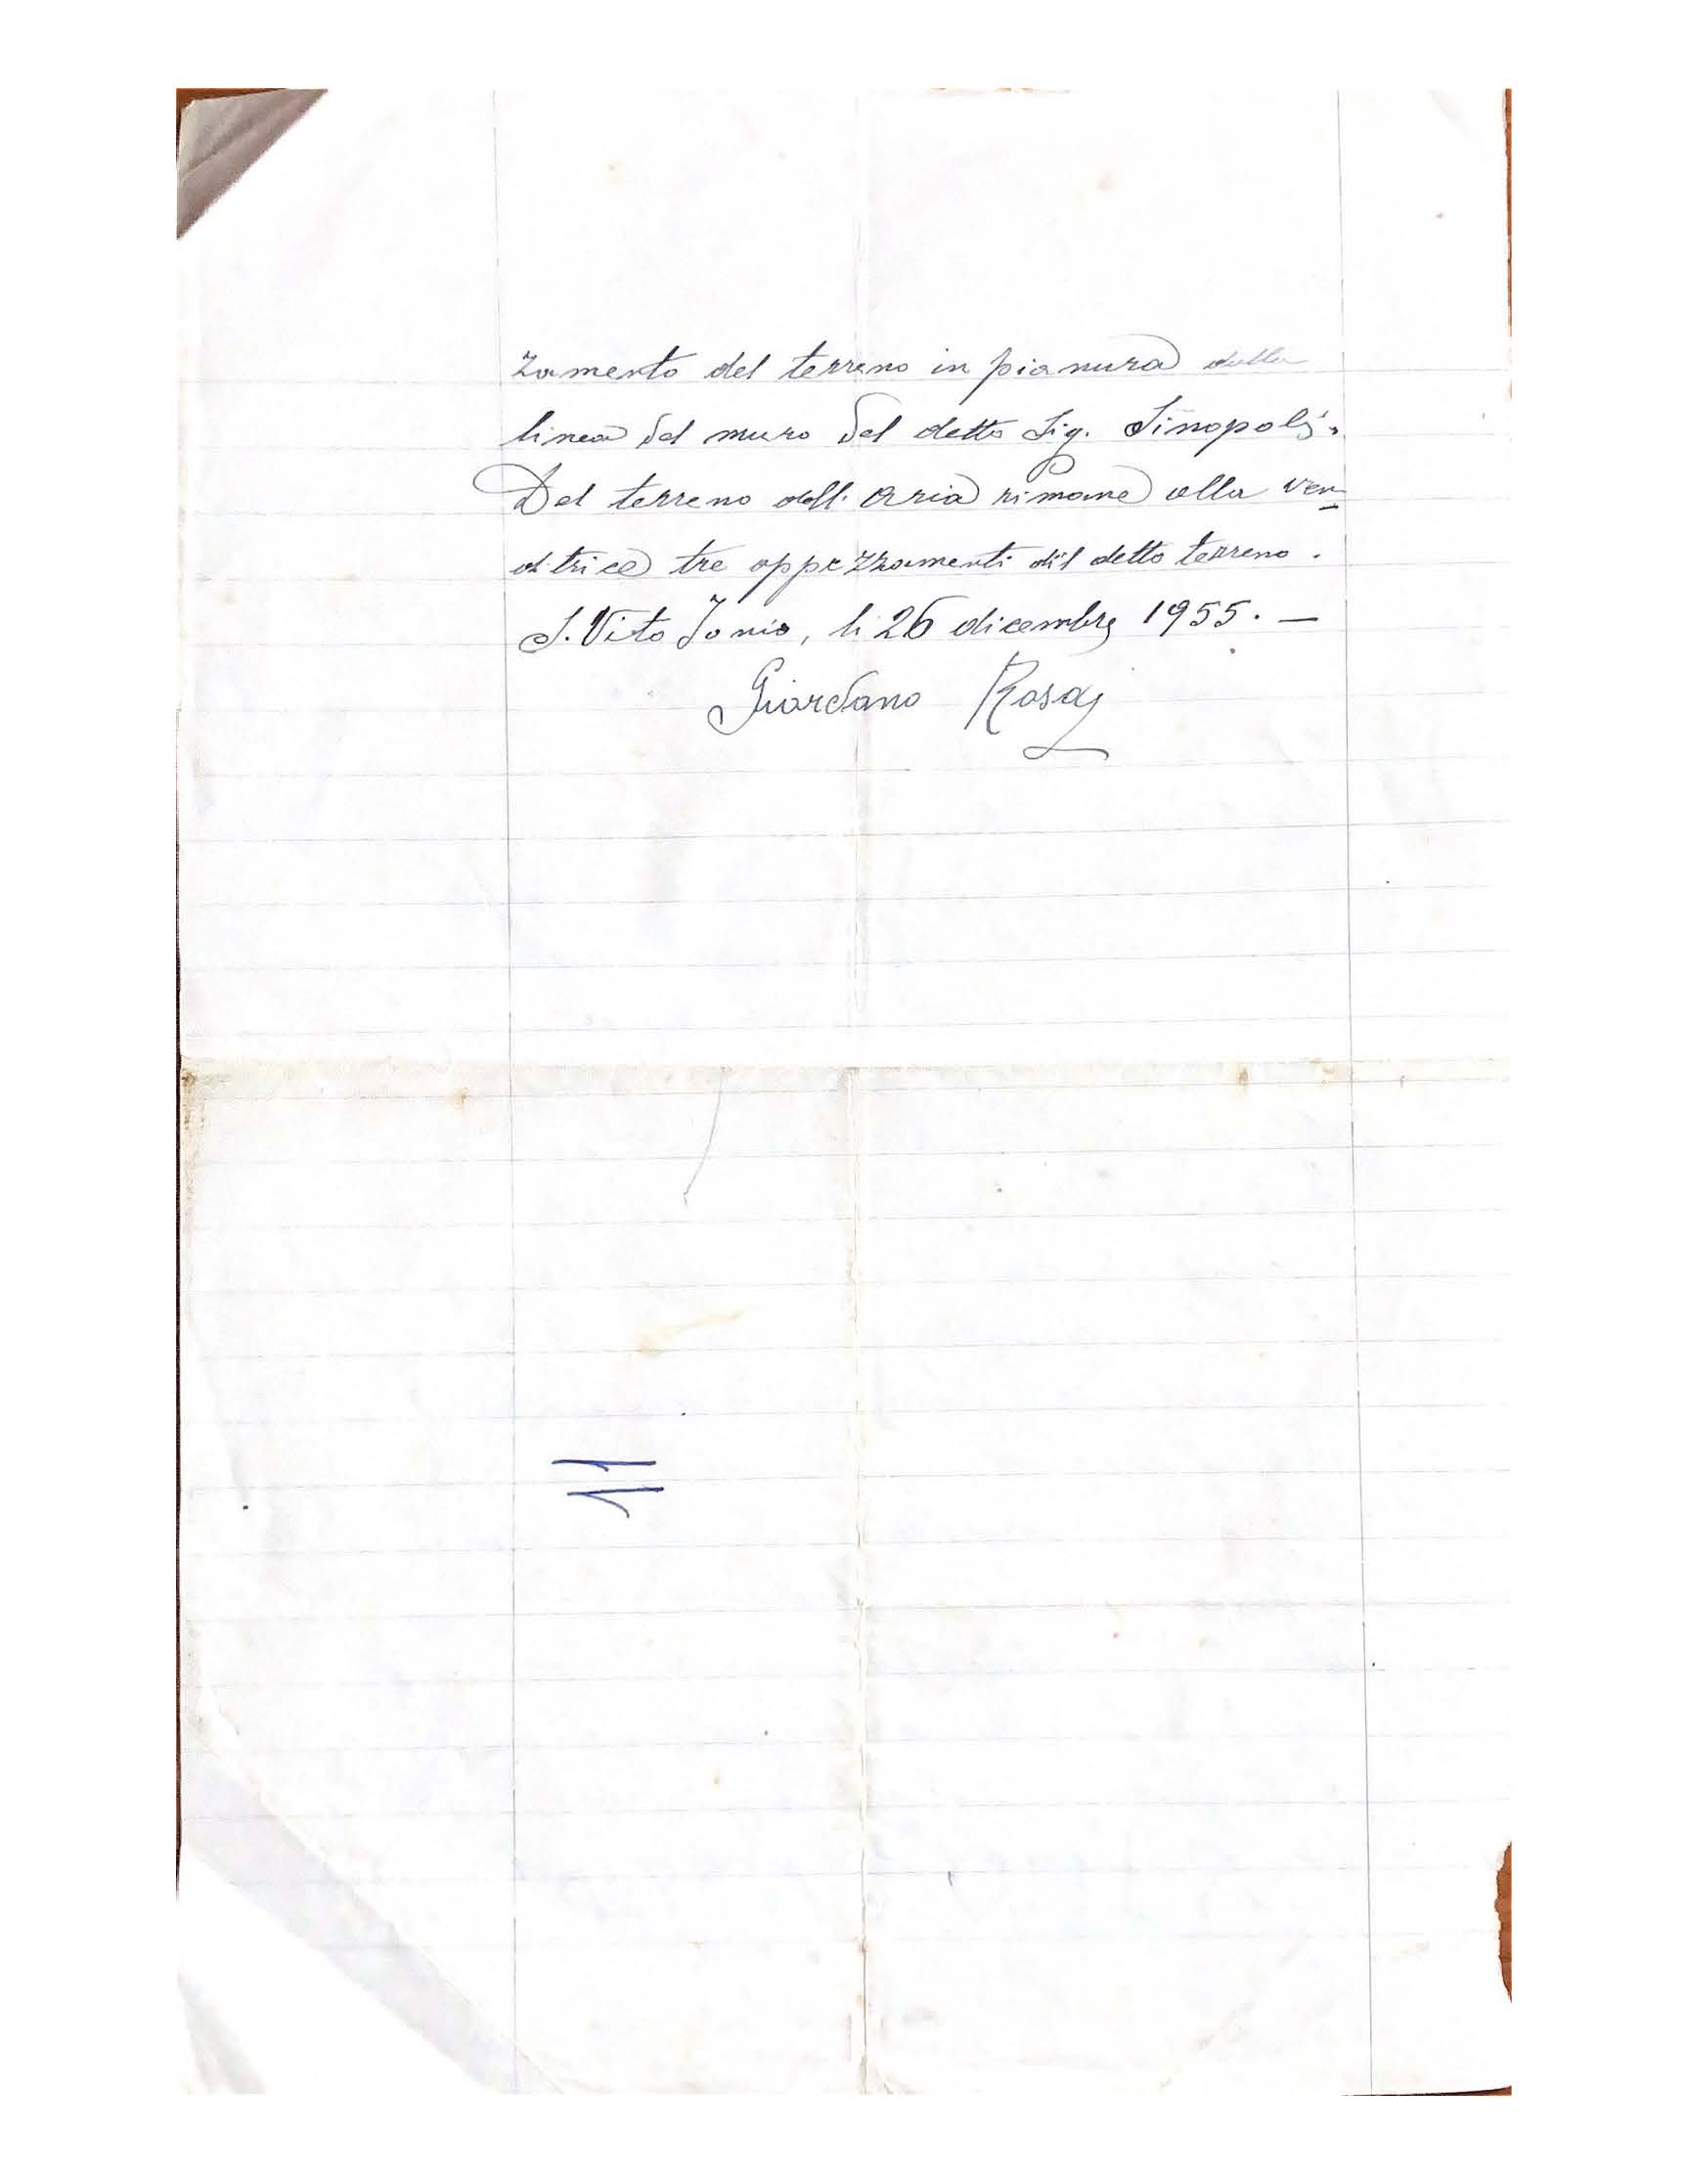 zamento del terreno in pianura dalla
linea del muro del detto Sig. Sinopoli.
Del terreno dell'aria rimane alla ven-
ditrice tre appezzamenti del detto terreno.
S. Vito Jonio, li 26 dicembre 1955. —
Giordano Rosa
11